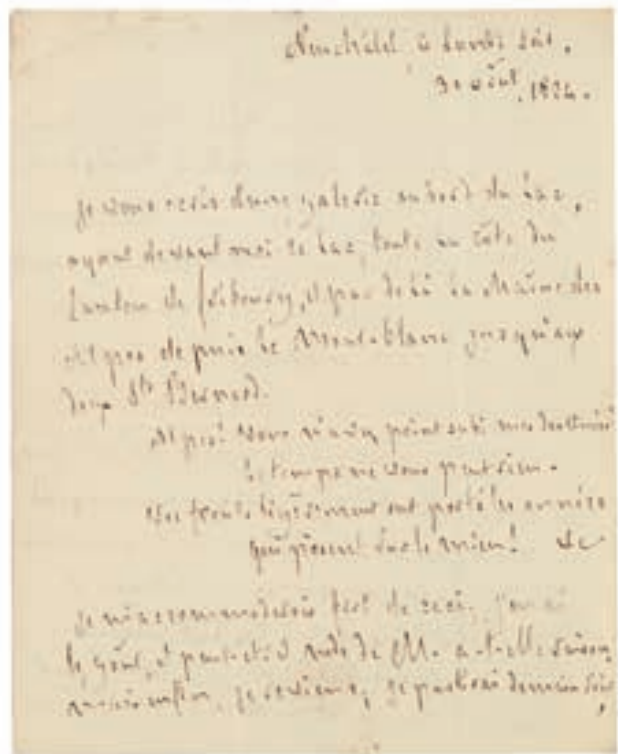 Neuchâtel, ce Lundi soir.
30 août, 1824.
je vous écris d'une galerie au bord du lac,
ayant devant moi ce lac, toute la côte du
canton de fribourg, et par de là la chaîne des
Alpes depuis le Mont-blanc jusqu'aux
deux St Bernard.
Alpes! vous n'avez point subi mes destinées!
le temps ne vous peut rien.
Vos fronts légèrement ont porté les années
qui pèsent sur le mien! &c
je m'accommoderois fort de ceci. j'en ai
le goût, et peut-être de M.
enfin, je reviens, je partirai demain soir,